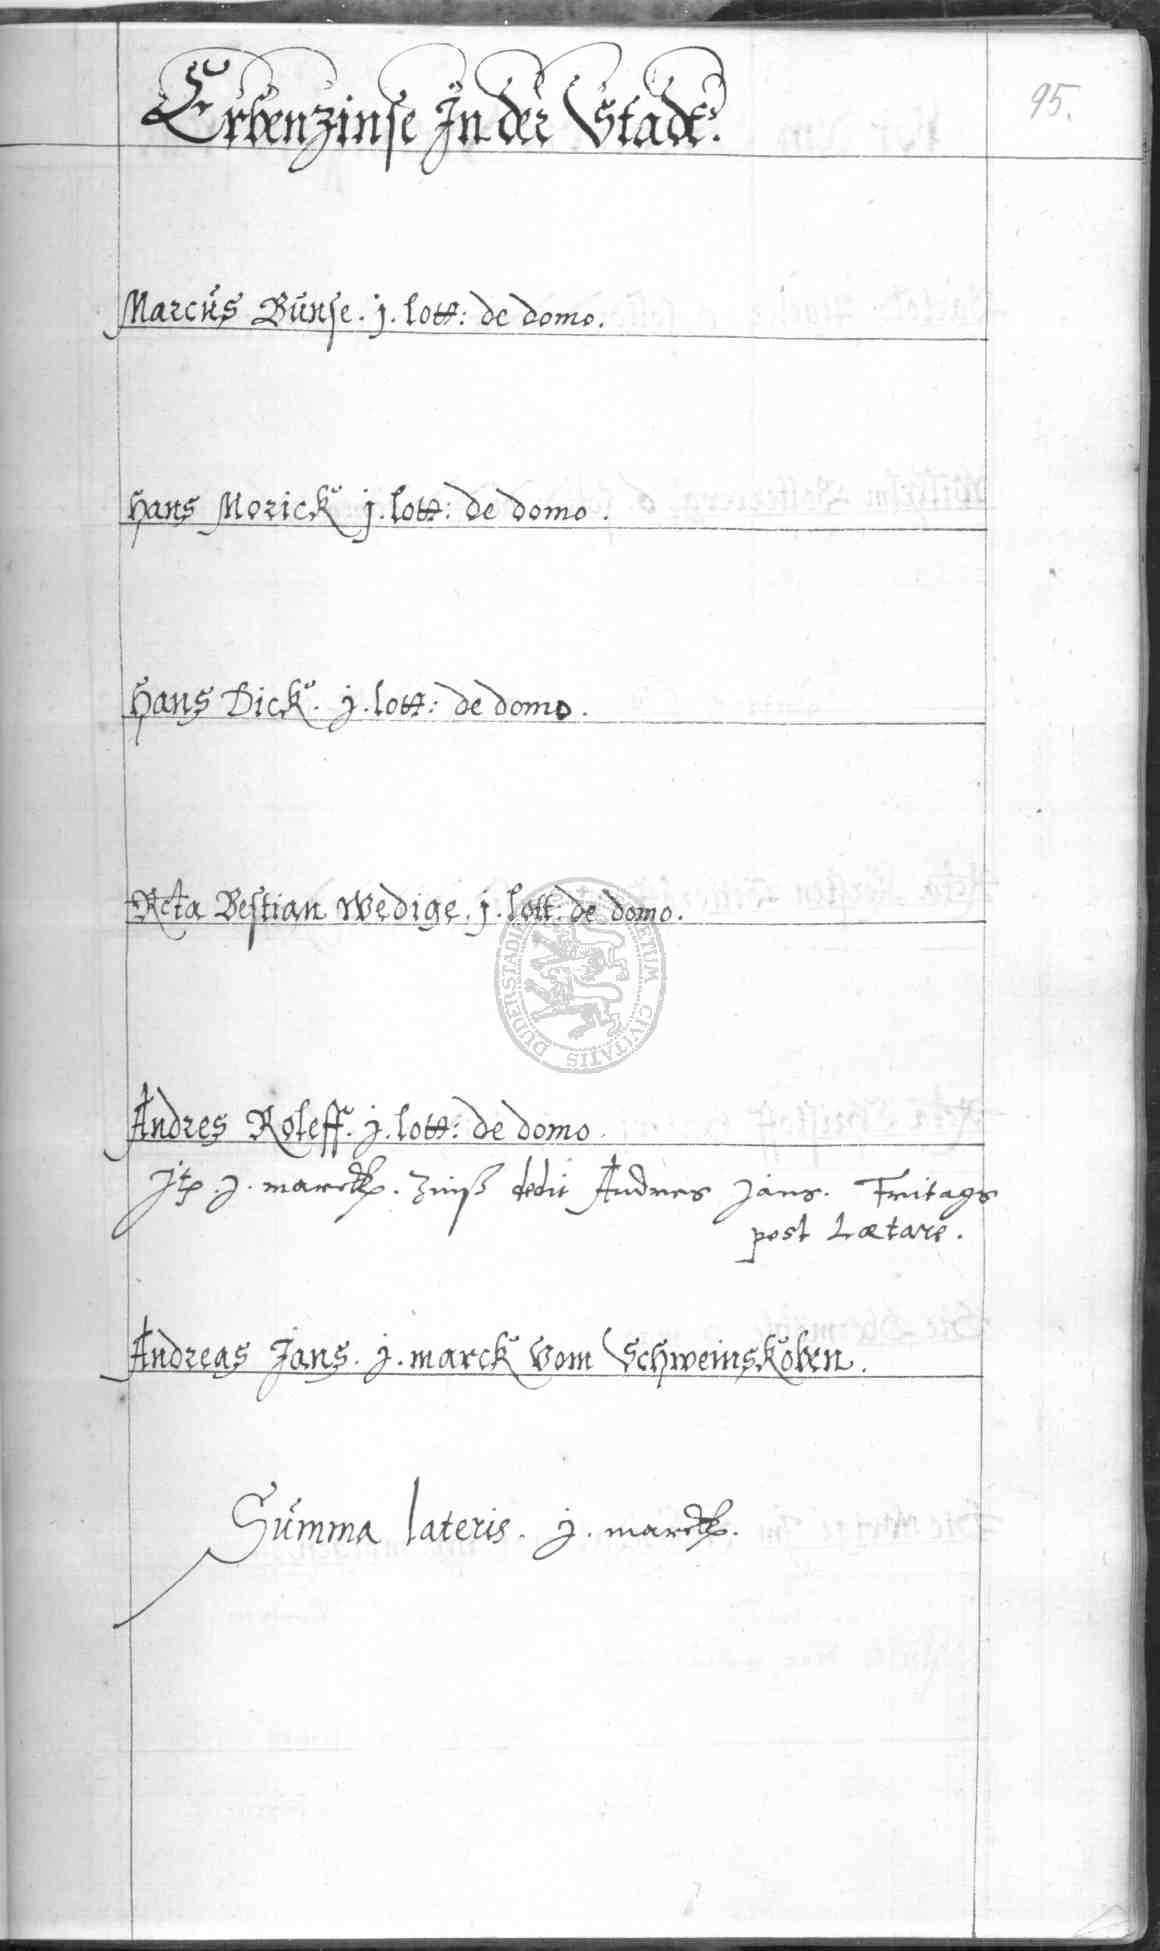 Erbenzinse In der Stadt.
95.
Marcus Bunse. j. lott: de domo.
Hans Morick j. lott: de domo.
Hans Dick. j. lott: de domo.
Relicta Bestian Wedige. j. lott: de domo.
Andres Roleff. j. lott: de domo.
It. j. marck. Zinß dedit Andres Jans. Freitags
post Lætare.
Andreas Jans. j. marck Vom Schweinskoben.
Summa lateris. j. marck.
SIGILLUM
DUDERSTADIENSIS CIVITATIS